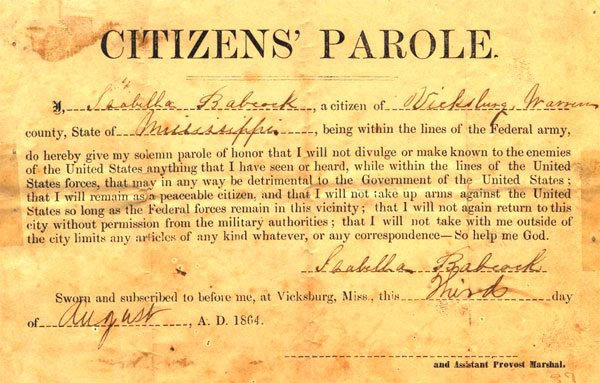 CITIZENS' PAROLE.
I, Isabella Babcock, a citizen of Vicksburg, Warren
county, State of Mississippi, being within the lines of the Federal army,
do hereby give my solemn parole of honor that I will not divulge or make known to the enemies
of the United States anything that I have seen or heard, while within the lines of the United
States forces, that may in any way be detrimental to the Government of the United States;
that I will remain as a peaceable citizen, and that I will not take up arms against the United
States so long as the Federal forces remain in this vicinity; that I will not again return to this
city without permission from the military authorities; that I will not take with me outside of
the city limits any articles of any kind whatever, or any correspondence—So help me God.
Isabella Babcock
Sworn and subscribed to before me, at Vicksburg, Miss., this Third day
of August, A. D. 1864.
and Assistant Provost Marshal.